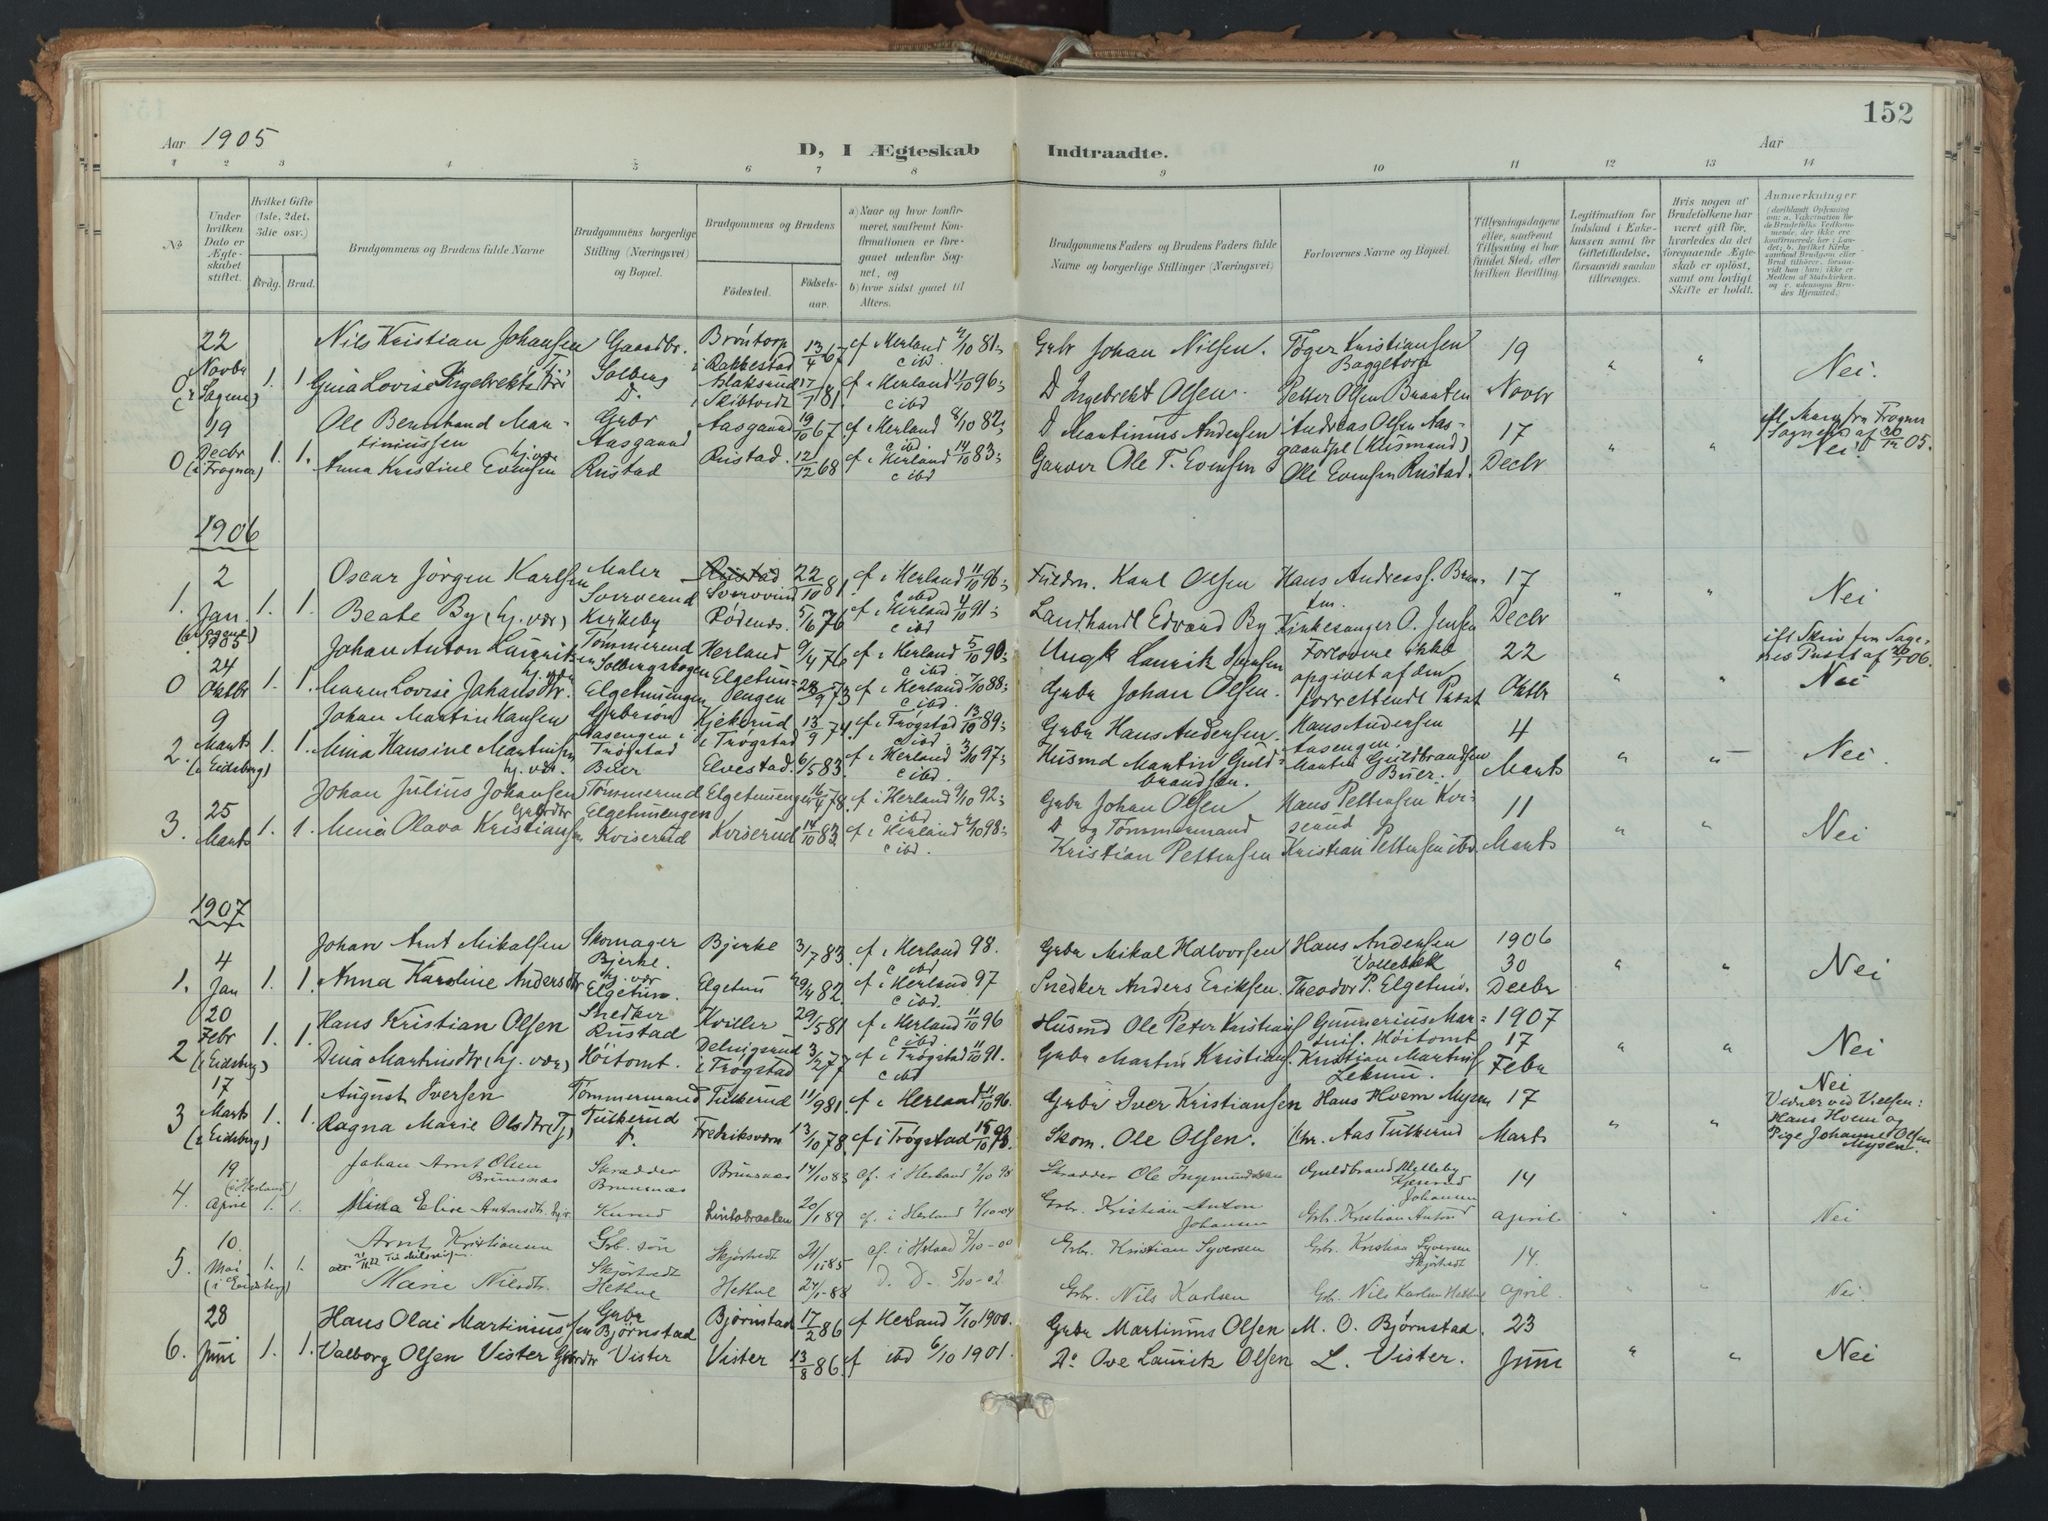 152
Aar 1905
D, I Ægteskab Indtraadte.
Aar
1 2 3 4 5 6 7 8 9 10 11 12 13 14
No
Under hvilken Dato er Ægteskabet stiftet.
Hvilket Gifte (1ste, 2det, 3die osv.)
Brdg. Brud.
Brudgommens og Brudens fulde Navne
Brudgommens borgerlige Stilling (Næringsvei) og Bopæl.
Brudgommens og Brudens
Fødested. Fødselsaar.
a) Naar og hvor konfirmeret, saafremt Konfirmationen er foregaaet udenfor Sognet, og
b) hvor sidst gaaet til Alters.
Brudgommens Faders og Brudens Faders fulde Navne og borgerlige Stillinger (Næringsvei)
Forlovernes Navne og Bopæl.
Tillysningsdagene eller, saafremt Tillysning ei har fundet Sted, efter hvilken Bevilling.
Legitimation for Indskud i Enkekassen samt for Giftetilladelse, forsaavidt saadan tiltrænges.
Hvis nogen af Brudefolkene har været gift før, hvorledes da det foregaaende Ægteskab er opløst, samt om lovligt Skifte er holdt.
Anmerkninger
22 Novbr 0 (i Sagene) 1. 1
Nils Kristian Johansen Gaardbr. Solberg Brøntorp i Rakkestad 13/4 67 cf i Herland 4/10 81 c ibd Grbr Johan Nilsen. Tøger Kristiansen Baggetorp 19 " " Nei.
Gina Lovise Ingebrektsdtr Tj D. Blaksrud i Skibtvedt 17/7 81. cf i Herland 11/10 96 c ibd D Ingebrekt Olsen. Petter Olsen Braaten Novbr
19 Decbr 0 (i Frogner) 1. 1.
Ole Bernhard Martiniussen Grbr Aasgaard Aasgaard 19/10 67 cf i Herland 8/10 82 c ibd. D Martinius Andersen Andreas Olsen Aasgaardpl (Husmand) 17 " " Sogned af 20/12 05. Nei
Anna Kristine Evensen hj. vær Rustad Rustad. 12/12 68 cf i Herland 14/10 83 c ibd Garver Ole T. Evensen Ole Evensen Rustad. Decbr
1906
1. 2 Jan. 1. 1.
Oscar Jørgen Karlsen Maler Sververud Rustad 22/10 81. cf i Herland 11/10 96 c ibd Karl Olsen Hans Andreass. 17 " " Nei
Beate By (hj. vær) Kirkeby Rødenes. 5/6 76 cf i Herland 4/10 91 c ibd Landhandl Edvard By Kirkesanger O. Jensen Decbr
1905 24 Oktbr 0 1. 1.
Johan Anton Lauritsen Tømmermd Solbergskogen Herland 9/4 76 cf i Herland 5/10 90 c ibd. Ungk Laurik Jensen Forlovere ikke opgivet af den forrettende Prest 22 Oktbr " " Nei
Maren Lovise Johansdtr. hj. vær Elgetunengen Elgetunengen 28/9 73 cf i Herland 7/10 88 c ibd. Grbr Johan Olsen.
2. 9 Marts (i Eidsberg) 1. 1.
Johan Martin Hansen Grbrsøn Aasengen i Trøgstad Kjekerud i Trøgstad 13/9 74. cf i Trøgstad 13/10 89 c ibd. Grbr Hans Andersen. Hans Andersen Aasengen. 4 Marts " " Nei
Mina Hansine Martinsen hj. vær. Buer Elvestad. 6/5 83. cf i Herland 3/10 97 c ibd. Husmd Martin Guldbrandsen. Martin Guldbrandsen Buer.
3. 25 Marts 1. 1.
Johan Julius Johansen Tømmermd Elgetunengen Elgetunengen 16/4 78. cf i Herland 9/10 92 c ibd Grbr Johan Olsen Hans Pettersen Kviserud 11 " " Nei
Mina Olava Kristiansen Grbrdtr Kviserud Kviserud 14/10 83. cf i Herland 2/10 98 c ibd. D og Tømmermand Kristian Pettersen Kristian Pettersen ibd. Marts
1907
1. 4 Jan 1. 1.
Johan Arnt Mikalsen Skomager Bjerke. Bjerke 3/7 83. cf i Herland 98. c ibd Grbr Mikal Halvorsen Hans Andersen Vollebæk 1906 30 " " Nei
Anna Karoline Andersdtr hj. vær Elgetun. Elgetun 29/4 82. cf i Herland 97 c ibd. Snedker Anders Eriksen. Theodor P. Elgetun. Decbr
2 20 Febr (i Eidsberg) 1. 1.
Hans Kristian Olsen Snedker Rustad Kviller 29/5 81 cf i Herland 11/10 96 c ibd. Husmd Ole Peter Kristians. Gunnerius Martins. Høitomt 1907 17 " " Nei
Dina Martinsdtr (hj. vær) Høitomt. i Trøgstad 3/2 77 cf i Trøgstad 11/10 91. c ibd Grbr Martin Kristians. Kristian Martins. Lekum. Febr
3 17 Marts (i Eidsberg) 1. 1.
August Iversen Tømmermand Tuterud Tuterud 11/9 81. cf i Herland 11/10 96. Grbr Iver Kristiansen Hans Hvem Mysen 17 Nei
Ragna Marie Olsdtr (Tj) D. Fredriksværn 13/10 78. cf i Trøgstad 15/10 93. Skom. Ole Olsen. Chr. Aas Tuterud Marts
Vidner ved Vielsen: Hans Hvem og Pige Johanne Olsen Mysen.
4. 19 (i Herland) April 1. 1.
Johan Arnt Olsen Brunsnæs Skrædder Brunsnæs Brunsnæs 14/10 83 cf. i Herland 2/10 98 Skrædder Ole Ingemundssen Guldbrand 14 " " Nei
Mina Elise Antonsdtr. Lintobraaten 20/1 89 cf. i Herland Grbr. Kristian Anton Johansen Grbr. Kristian Anton Johansen april
5. 10. Mai (i Eidsberg) 1. 1.
Arnt Kristiansen Grb. søn Skjørtvedt Skjørtvedt 21/11 85 cf. i Herland 7/10-00 Grbr. Kristian Syversen Grbr. Kristian Syversen Skjørtvedt 14. " " Nei
Marie Nilsdtr. Hettue Hettue 27/1-88 D. D- 5/10-02. Grbr. Nils Karlsen Grb. Nils Karlsen Hettue april.
6. 28 Juni 1. 1.
Hans Olai Martiniussen Grbr Bjørnstad Bjørnstad 17/2 86 cf Herland 7/10 1900. Grbr Martinius Olsen M. O. Bjørnstad. 23 " " Nei
Valborg Olsen Vister Grbrdtr Vister Vister 13/8 86. cf ibd 6/10 1901. Do Ove Lauritz Olsen L. Vister. Juni